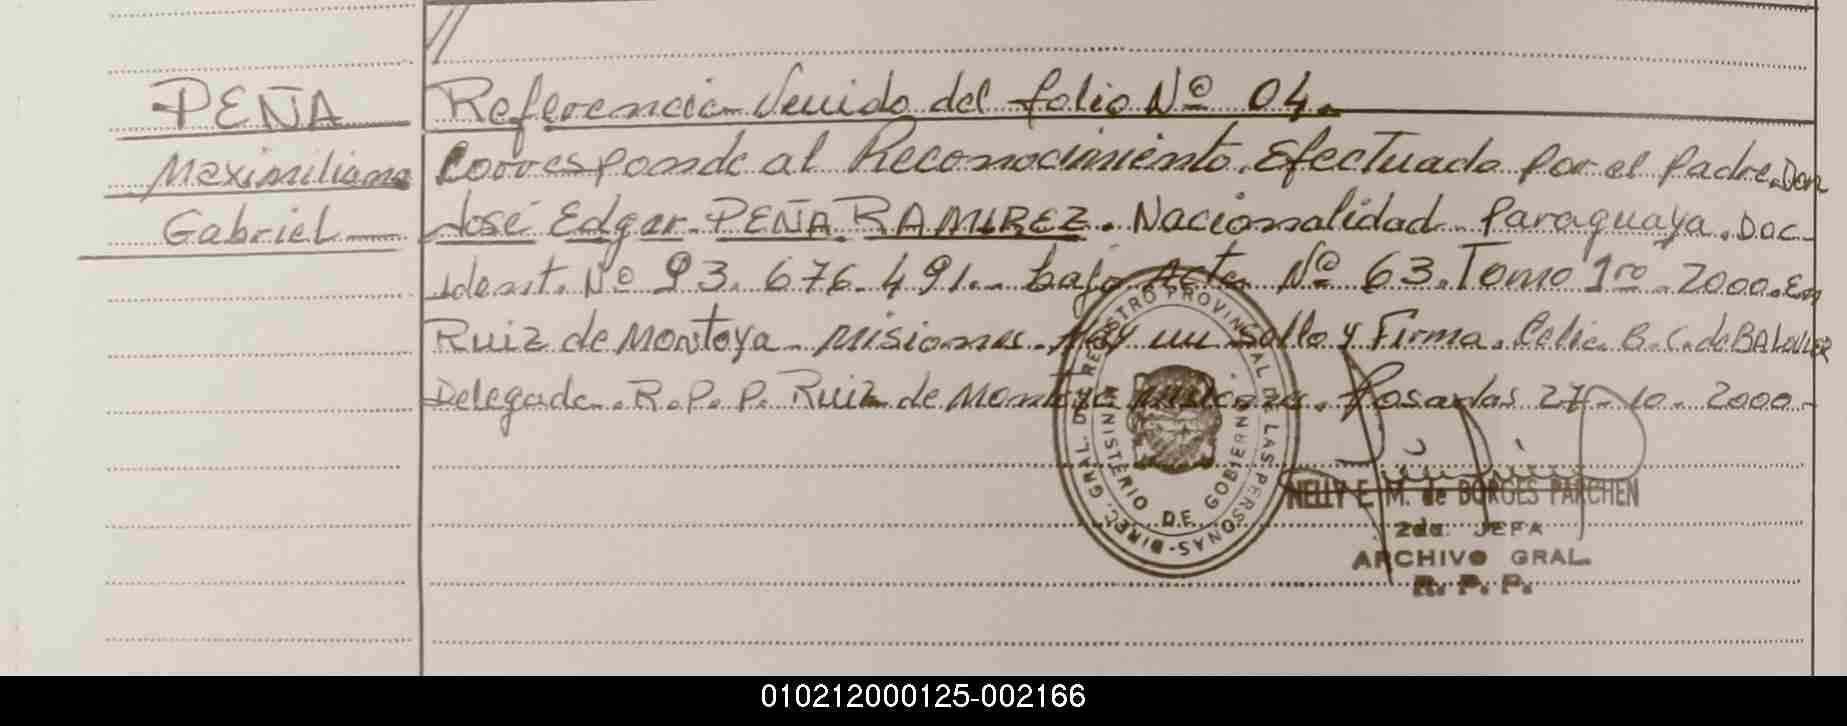 PEÑA
Maximiliano
Gabriel
Referencia Venido del folio Nº 04.
Corresponde al Reconocimiento. Efectuado por el Padre. Don
José Edgar PEÑA RAMIREZ. Nacionalidad Paraguaya. Doc.
Ident. Nº 93.676.491. bajo Acta Nº 63. Tomo 1ro. 2000. En
Ruiz de Montoya Misiones. Hay un sello y Firma. Celia B. C. de BALOVIER
Delegada. R.P.P. Ruiz de Montoya Misiones. Posadas 27-10-2000-
DIREC. GRAL. DE REGISTRO PROVINCIAL DE LAS PERSONAS
MINISTERIO DE GOBIERNO
NELLY E. M. de BORGES PARCHEN
2da. JEFA
ARCHIVO GRAL.
R. P. P.
010212000125-002166